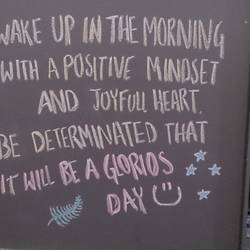 WAKE UP IN THE MORNING
WITH A POSITIVE MINDSET
AND JOYFULL HEART.
BE DETERMINATED THAT
IT WILL BE A GLORIOS
DAY